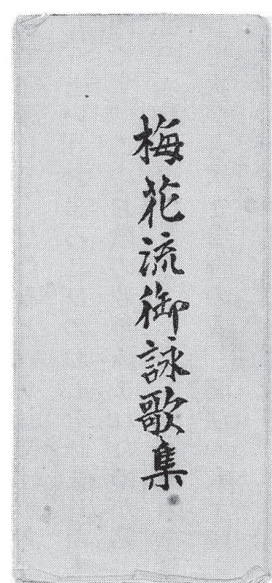 梅花流御詠歌集